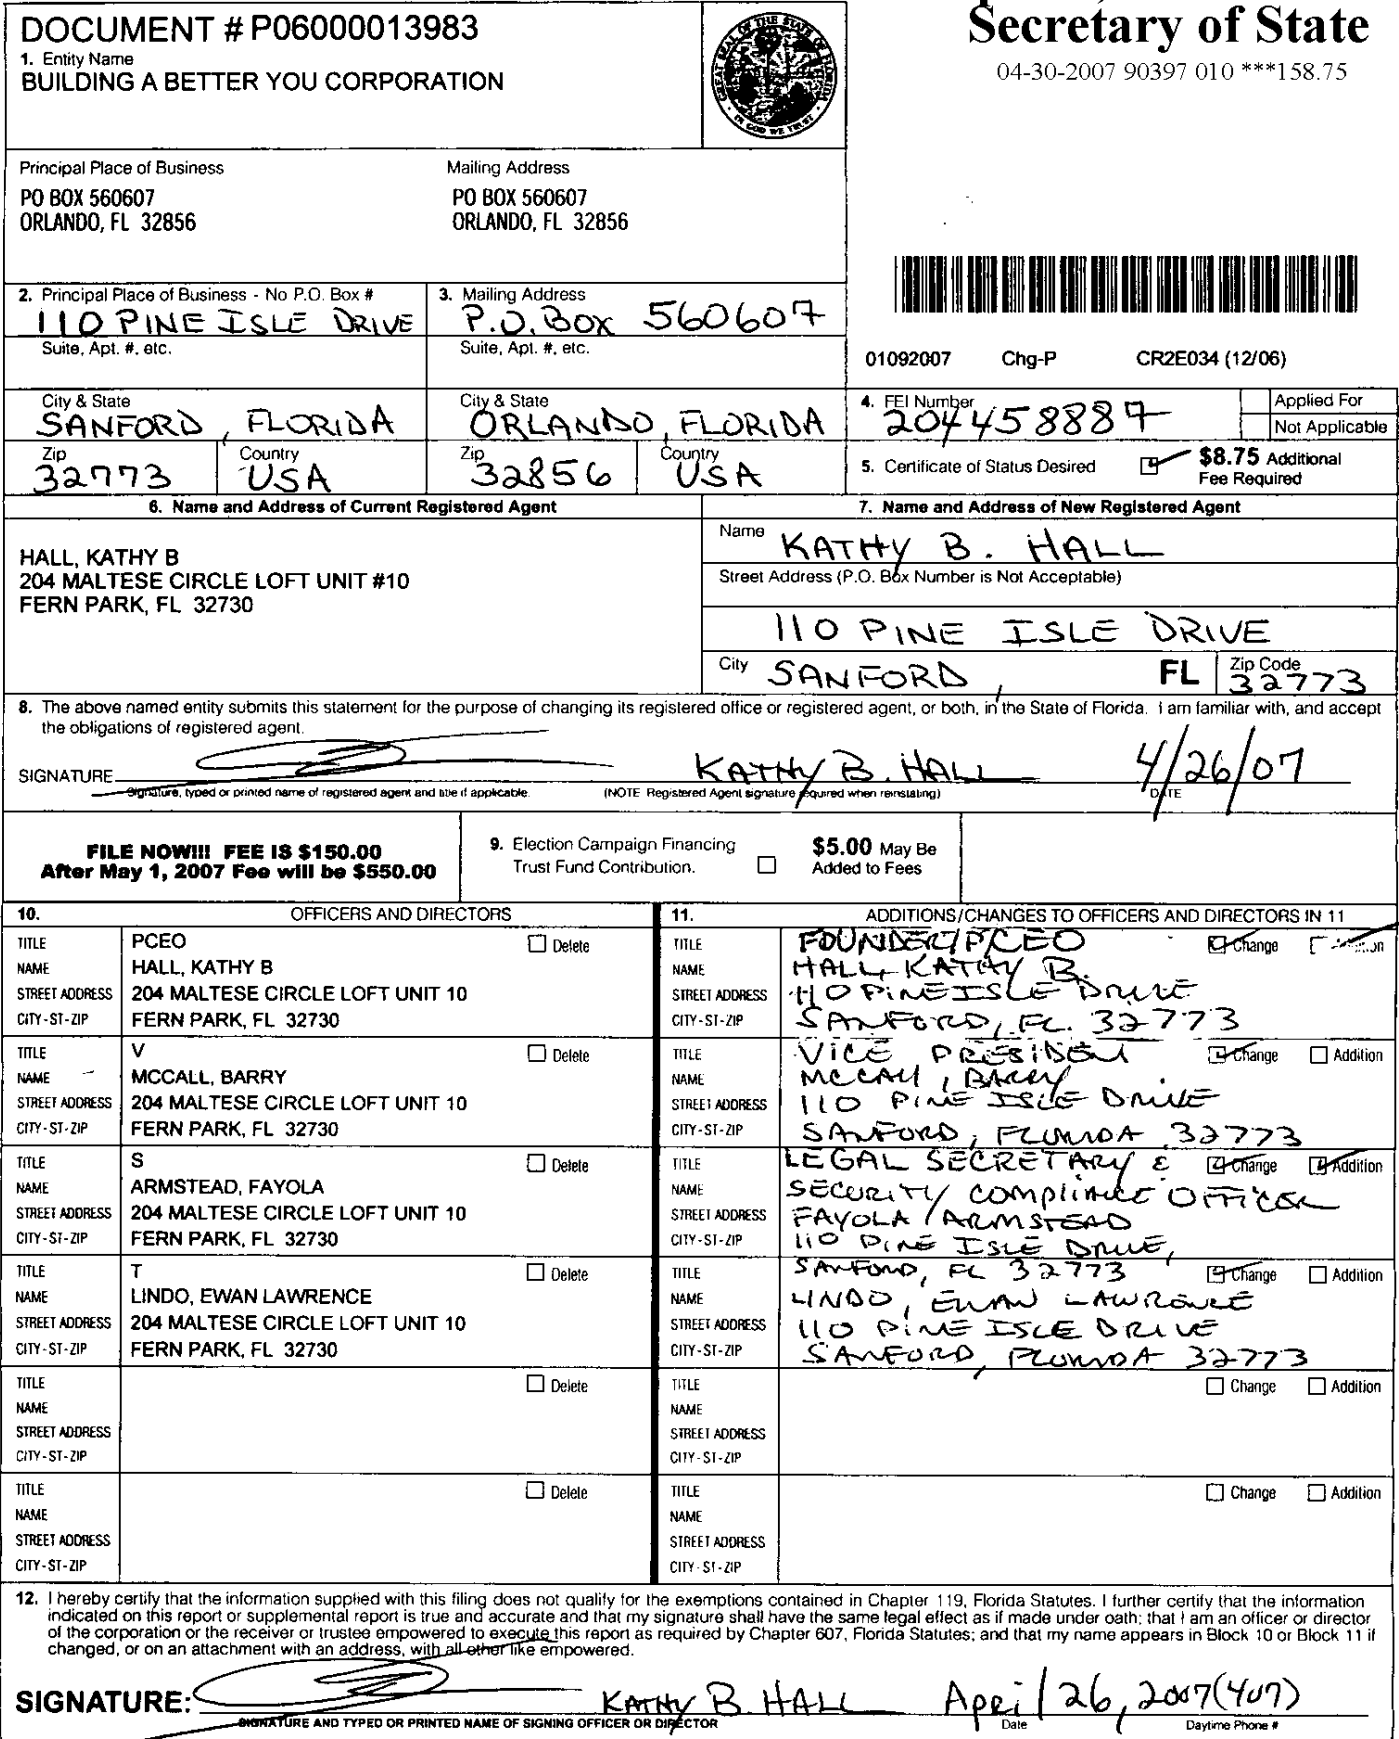 Secretary of State
04-30-2007 90397 010 ***158.75
DOCUMENT # P06000013983
1. Entity Name
BUILDING A BETTER YOU CORPORATION
GREAT SEAL OF THE STATE OF FLORIDA
IN GOD WE TRUST
Principal Place of Business
PO BOX 560607
ORLANDO, FL 32856
Mailing Address
PO BOX 560607
ORLANDO, FL 32856
2. Principal Place of Business - No P.O. Box #
110 PINE ISLE DRIVE
Suite, Apt. #, etc.
3. Mailing Address
P.O. Box 560607
Suite, Apt. #, etc.
01092007 Chg-P CR2E034 (12/06)
City & State
SANFORD, FLORIDA
City & State
ORLANDO, FLORIDA
4. FEI Number
204458887
Applied For
Not Applicable
Zip
32773
Country
USA
Zip
32856
Country
USA
5. Certificate of Status Desired
$8.75 Additional
Fee Required
6. Name and Address of Current Registered Agent
HALL, KATHY B
204 MALTESE CIRCLE LOFT UNIT #10
FERN PARK, FL 32730
7. Name and Address of New Registered Agent
Name KATHY B. HALL
Street Address (P.O. Box Number is Not Acceptable)
110 PINE ISLE DRIVE
City SANFORD, FL Zip Code 32773
8. The above named entity submits this statement for the purpose of changing its registered office or registered agent, or both, in the State of Florida. I am familiar with, and accept
the obligations of registered agent.
SIGNATURE KATHY B. HALL 4/26/07
Signature, typed or printed name of registered agent and title if applicable. (NOTE Registered Agent signature required when reinstating) DATE
FILE NOW!!! FEE IS $150.00
After May 1, 2007 Fee will be $550.00
9. Election Campaign Financing
Trust Fund Contribution.
$5.00 May Be
Added to Fees
10. OFFICERS AND DIRECTORS
TITLE PCEO Delete
NAME HALL, KATHY B
STREET ADDRESS 204 MALTESE CIRCLE LOFT UNIT 10
CITY-ST-ZIP FERN PARK, FL 32730
TITLE V Delete
NAME MCCALL, BARRY
STREET ADDRESS 204 MALTESE CIRCLE LOFT UNIT 10
CITY-ST-ZIP FERN PARK, FL 32730
TITLE S Delete
NAME ARMSTEAD, FAYOLA
STREET ADDRESS 204 MALTESE CIRCLE LOFT UNIT 10
CITY-ST-ZIP FERN PARK, FL 32730
TITLE T Delete
NAME LINDO, EWAN LAWRENCE
STREET ADDRESS 204 MALTESE CIRCLE LOFT UNIT 10
CITY-ST-ZIP FERN PARK, FL 32730
TITLE Delete
NAME
STREET ADDRESS
CITY-ST-ZIP
TITLE Delete
NAME
STREET ADDRESS
CITY-ST-ZIP
11. ADDITIONS/CHANGES TO OFFICERS AND DIRECTORS IN 11
TITLE FOUNDER/P/CEO Change
NAME HALL, KATHY B.
STREET ADDRESS 110 PINE ISLE DRIVE
CITY-ST-ZIP SANFORD, FL. 32773
TITLE VICE PRESIDENT Change Addition
NAME MCCALL, BARRY
STREET ADDRESS 110 PINE ISLE DRIVE
CITY-ST-ZIP SANFORD, FLORIDA 32773
TITLE LEGAL SECRETARY & Change Addition
NAME SECURITY COMPLIANCE OFFICER
STREET ADDRESS FAYOLA ARMSTEAD
CITY-ST-ZIP 110 PINE ISLE DRIVE,
TITLE SANFORD, FL 32773 Change Addition
NAME LINDO, EWAN LAWRENCE
STREET ADDRESS 110 PINE ISLE DRIVE
CITY-ST-ZIP SANFORD, FLORIDA 32773
TITLE Change Addition
NAME
STREET ADDRESS
CITY-ST-ZIP
TITLE Change Addition
NAME
STREET ADDRESS
CITY-ST-ZIP
12. I hereby certify that the information supplied with this filing does not qualify for the exemptions contained in Chapter 119, Florida Statutes. I further certify that the information
indicated on this report or supplemental report is true and accurate and that my signature shall have the same legal effect as if made under oath; that I am an officer or director
of the corporation or the receiver or trustee empowered to execute this report as required by Chapter 607, Florida Statutes; and that my name appears in Block 10 or Block 11 if
changed, or on an attachment with an address, with all other like empowered.
SIGNATURE: KATHY B. HALL April 26, 2007 (407)
SIGNATURE AND TYPED OR PRINTED NAME OF SIGNING OFFICER OR DIRECTOR Date Daytime Phone #